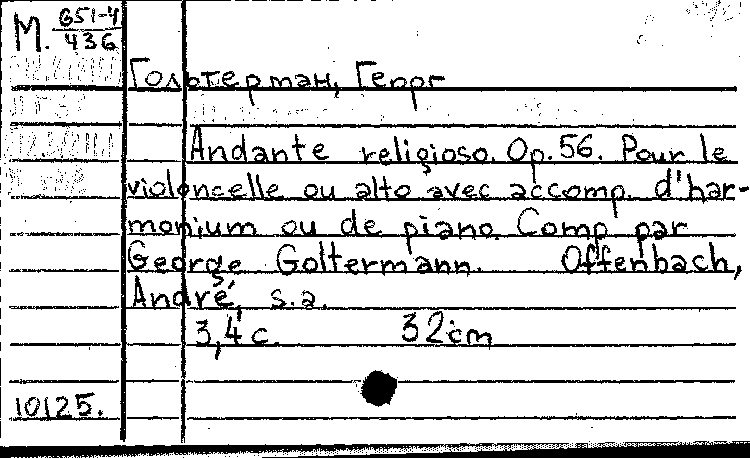 M. 651-4/436
Гольтерман, Георг
Andante religioso. Op. 56. Pour le
violoncelle ou alto avec accomp. d'har-
monium ou de piano. Comp par
George Goltermann. Offenbach,
André, s.a.
3,4 c. 32 cm
10125.